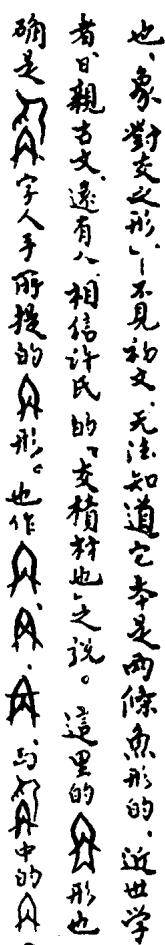 也、象對交之形」—不見初文、无法知道它本是兩條魚形的、近世学
者日親古文、還有人相信許氏的「交積材也」之說。這里的形也
确是字人手所提的形。也作、、、与中的